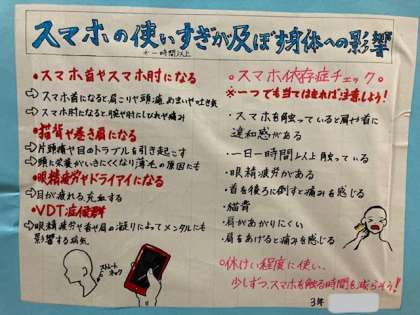 スマホの使いすぎが及ぼす身体への影響
※一時間以上
●スマホ首やスマホ肘になる
⇨スマホ首になると肩こりや頭痛、めまいや吐き気
⇨スマホ肘になると腕や肘にしびれや痛み
●猫背や巻き肩になる
⇨片頭痛や目のトラブルを引き起こす
⇨頭に栄養がいきにくくなり薄毛の原因にも
●眼精疲労やドライアイになる
⇨目が疲れる、充血する
●VDT症候群
⇨眼精疲労や首や肩の凝りによってメンタルにも
影響する病気
ストレート
ネック
●スマホ依存症チェック●
※一つでも当てはまれば注意しよう!
・スマホを触っていると肩や首に
違和感がある
・一日一時間以上触っている
・眼精疲労がある
・首を後ろに倒すと痛みを感じる
・猫背
・肩があがりにくい
・肩をあげると痛みを感じる
○休けい程度に使い、
少しずつ、スマホを触る時間を減らそう!
3年